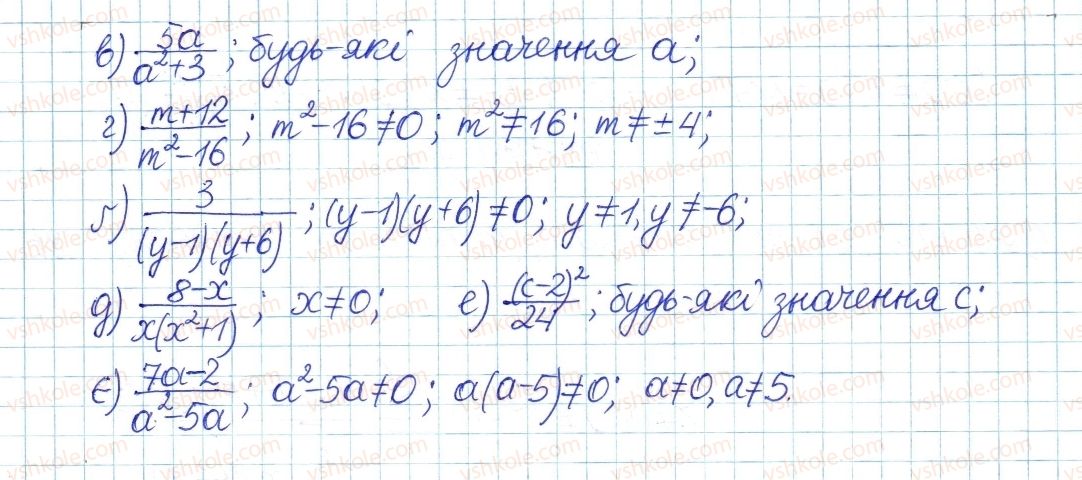 в) 5a/(a²+3); будь-які значення a;
г) (m+12)/(m²-16); m²-16≠0; m²≠16; m≠±4;
ґ) 3/((y-1)(y+6)); (y-1)(y+6)≠0; y≠1, y≠-6;
д) (8-x)/(x(x²+1)); x≠0; е) (c-2)²/24; будь-які значення c;
є) (7a-2)/(a²-5a); a²-5a≠0; a(a-5)≠0; a≠0, a≠5.
vshkole.com